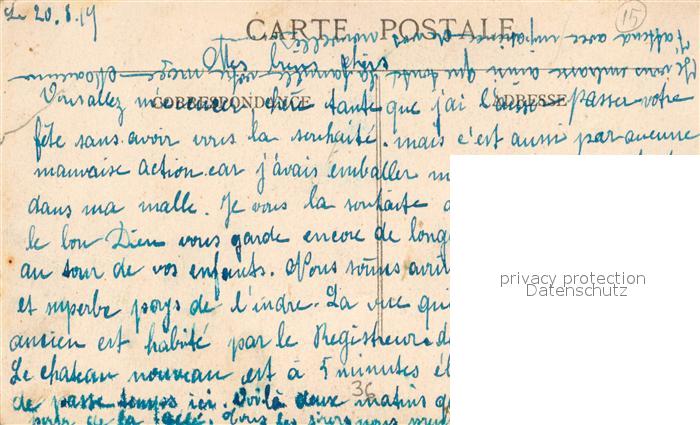 Le 20.8.19
15
CARTE POSTALE
J'attend avec impatience de vos nouvelles
Je vous embrasse ainsi que toute la famille votre nièce
Mes biens chers
CORRESPONDANCE
ADRESSE
Vous allez m'excuser chère tante que j'ai laissé passer votre
fête sans avoir vous la souhaité. mais c'est aussi par aucune
mauvaise action car j'avais emballer
dans ma malle. Je vous la souhaite
le bon Dieu vous garde encore de
au tour de vos enfants. Nous sommes
et superbe pays de l'indre. La vue
ancien est habité par le Regisseur.
Le chateau nouveau est à 5 minutes
de passe temps ici. Voilà deux matins
de la
36
privacy protection
Datenschutz